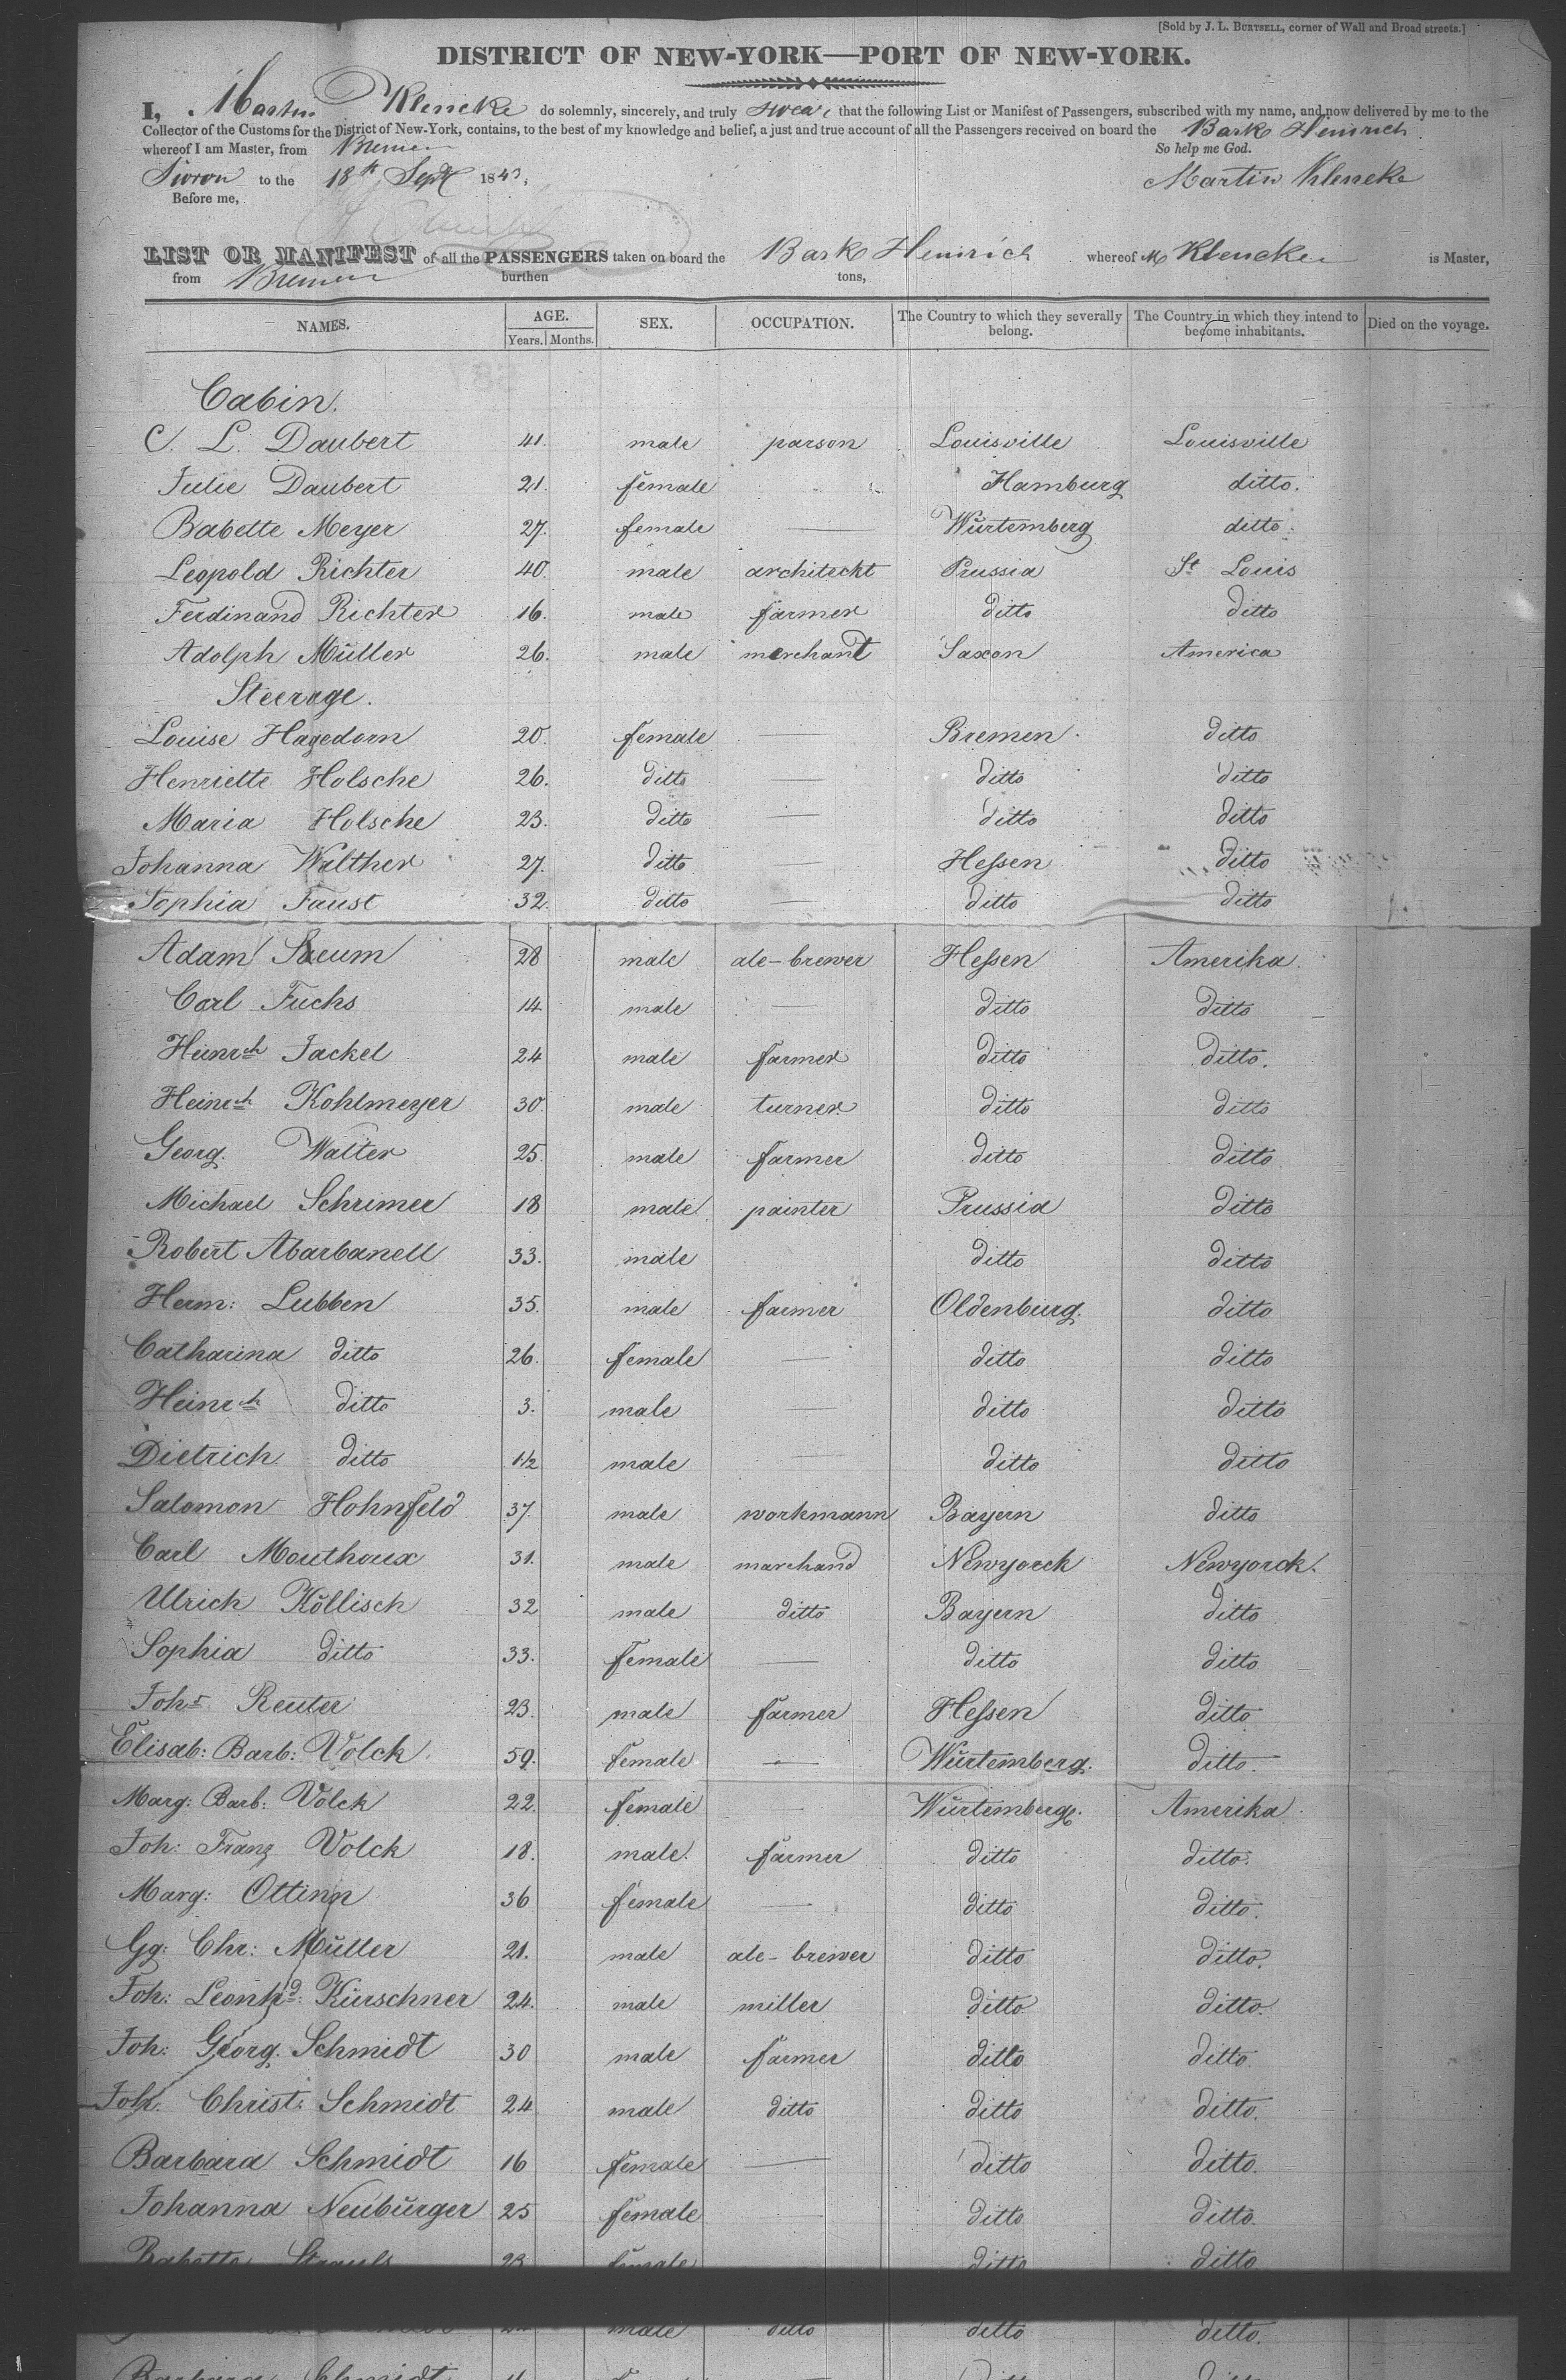 [Sold by J. L. BURTSELL, corner of Wall and Broad streets.]
DISTRICT OF NEW-YORK—PORT OF NEW-YORK.
I, Martin Klencke do solemnly, sincerely, and truly swear that the following List or Manifest of Passengers, subscribed with my name, and now delivered by me to the
Collector of the Customs for the District of New-York, contains, to the best of my knowledge and belief, a just and true account of all the Passengers received on board the Bark Heinrich
whereof I am Master, from Bremen So help me God.
Sworn to the 18th Sept 184
Martin Klencke
Before me,
LIST OR MANIFEST of all the PASSENGERS taken on board the Bark Heinrich whereof M Klencke is Master,
from Bremen burthen tons,
NAMES. AGE. Years. Months. SEX. OCCUPATION. The Country to which they severally belong. The Country in which they intend to become inhabitants. Died on the voyage.
Cabin.
C. L. Daubert 41. male parson Louisville Louisville
Julie Daubert 21. female Hamburg ditto.
Babette Meyer 27. female — Würtemberg ditto.
Leopold Richter 40. male architeckt Prussia St Louis
Ferdinand Richter 16. male farmer ditto ditto
Adolph Müller 26. male merchant Saxon America
Steerage.
Louise Hagedorn 20. female — Bremen ditto
Henriette Holsche 26. ditto — ditto ditto
Maria Holsche 23. ditto — ditto ditto
Johanna Walther 27. ditto — Hessen ditto
Sophia Faust 32. ditto — ditto ditto
Adam 28 male ale-brewer Hessen Amerika.
Carl Fuchs 14 male — ditto ditto
Heinrch Jackel 24 male farmer ditto ditto.
Heinrch Kohlmeyer 30. male turner ditto ditto
Georg. Walter 25. male farmer ditto ditto
Michael Schrimer 18 male painter Prussia ditto
Robert Abarbanell 33. male ditto ditto
Herm: Lubben 35. male farmer Oldenburg. ditto
Catharina ditto 26. female — ditto ditto
Heinrch ditto 3. male — ditto ditto
Dietrich ditto 1½ male — ditto ditto
Salomon Hohnfeld 37. male workmann Bayern ditto
Carl Mouthoux 31. male marchand Newyorck Newyorck.
Ulrich Köllisch 32 male ditto Bayern ditto
Sophia ditto 33. female — ditto ditto
Johs Reuter 23. male farmer Hessen ditto
Elisab: Barb: Volck. 59. female — Würtemberg. ditto.
Marg: Barb: Volck 22. female — Würtemberg. Amerika.
Joh: Franz Volck 18. male. farmer ditto ditto.
Marg: Ottinn 36 female — ditto ditto.
Gg: Chr: Müller 21. male ale-brewer ditto ditto.
Joh: Leonhd: Kürschner 24. male miller ditto ditto.
Joh: Georg. Schmidt 30 male farmer ditto ditto.
Joh. Christ: Schmidt 24 male ditto ditto ditto.
Barbara Schmidt 16 female — ditto ditto.
Johanna Neuburger 25 female — ditto ditto.
Babette Strauss 23. female ditto ditto
male ditto ditto ditto.
Barbara Schmidt